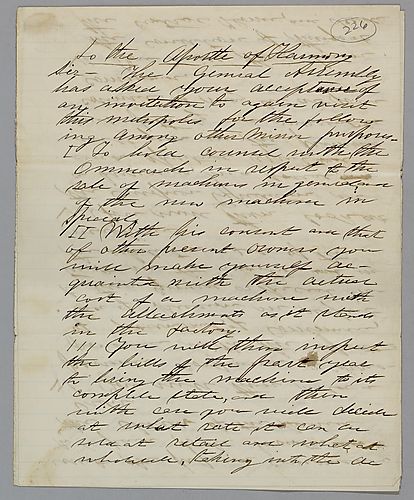 226
To the Apostle of Harmony
Sir - The General Assembly
has asked your acceptance of
an invitation to again visit
this metropolis for the follow-
ing among other minor purposes-
I To hold council with the
in respect to the
sale of machines in general and
of the new machine in
special,
II With his consent and that
of other present owners you
will make yourself ac-
quainted with the actual
cost of a machine with
the attachments as it stands
in the factory.
III You will then inspect
the bills of the past year
to bring the machine to its
complete state, and then
with care you will decide
at what rate it can be
sold at retail and what at
wholesale, taking into the ac